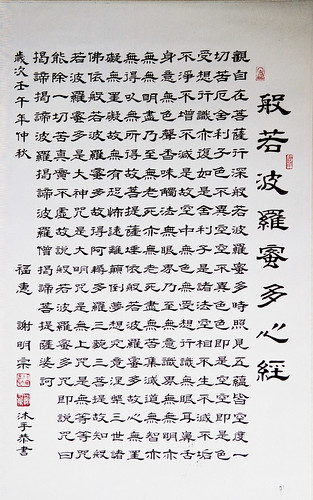 般若波羅蜜多心經
觀自在菩薩行深般若波羅蜜多時照見五蘊皆空度一
切苦厄舍利子色不異空空不異色色即是空空即是色
受想行識亦復如是舍利子是諸法空相不生不滅不垢
不淨不增不減是故空中無色無受想行識無眼耳鼻舌
身意無色聲香味觸法無眼界乃至無意識界無無明亦
無無明盡乃至無老死亦無老死盡無苦集滅道無智亦
無得以無所得故菩提薩埵依般若波羅蜜多故心無罣
礙無罣礙故無有恐怖遠離顛倒夢想究竟涅槃三世諸
佛依般若波羅蜜多故得阿耨多羅三藐三菩提故知般
若波羅蜜多是大神咒是大明咒是無上咒是無等等咒
能除一切苦真實不虛故說般若波羅蜜多咒即說咒曰
揭諦揭諦波羅揭諦波羅僧揭諦菩提薩婆訶
歲次壬午年仲秋 福惠 謝明宗 沐手恭書